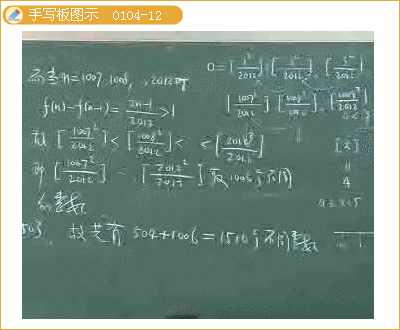 手写板图示 0104-12
而当n=1007,1008,…,2012时
f(n)-f(n-1)=\frac{2n-1}{2012}>1
故[\frac{1007^2}{2012}]<[\frac{1008^2}{2012}]<…<[\frac{2012^2}{2012}]
即[\frac{1007^2}{2012}]…[\frac{2012^2}{2012}]取1006个不同
的整数
503. 故共有504+1006=1510个不同整数
0=[\frac{1^2}{2012}],[\frac{2^2}{2012}],[\frac{3^2}{2012}]
[\frac{1007^2}{2012}],[\frac{1008^2}{2012}],[\frac{1009^2}{2012}]
[x]
"
4
4≤x<5